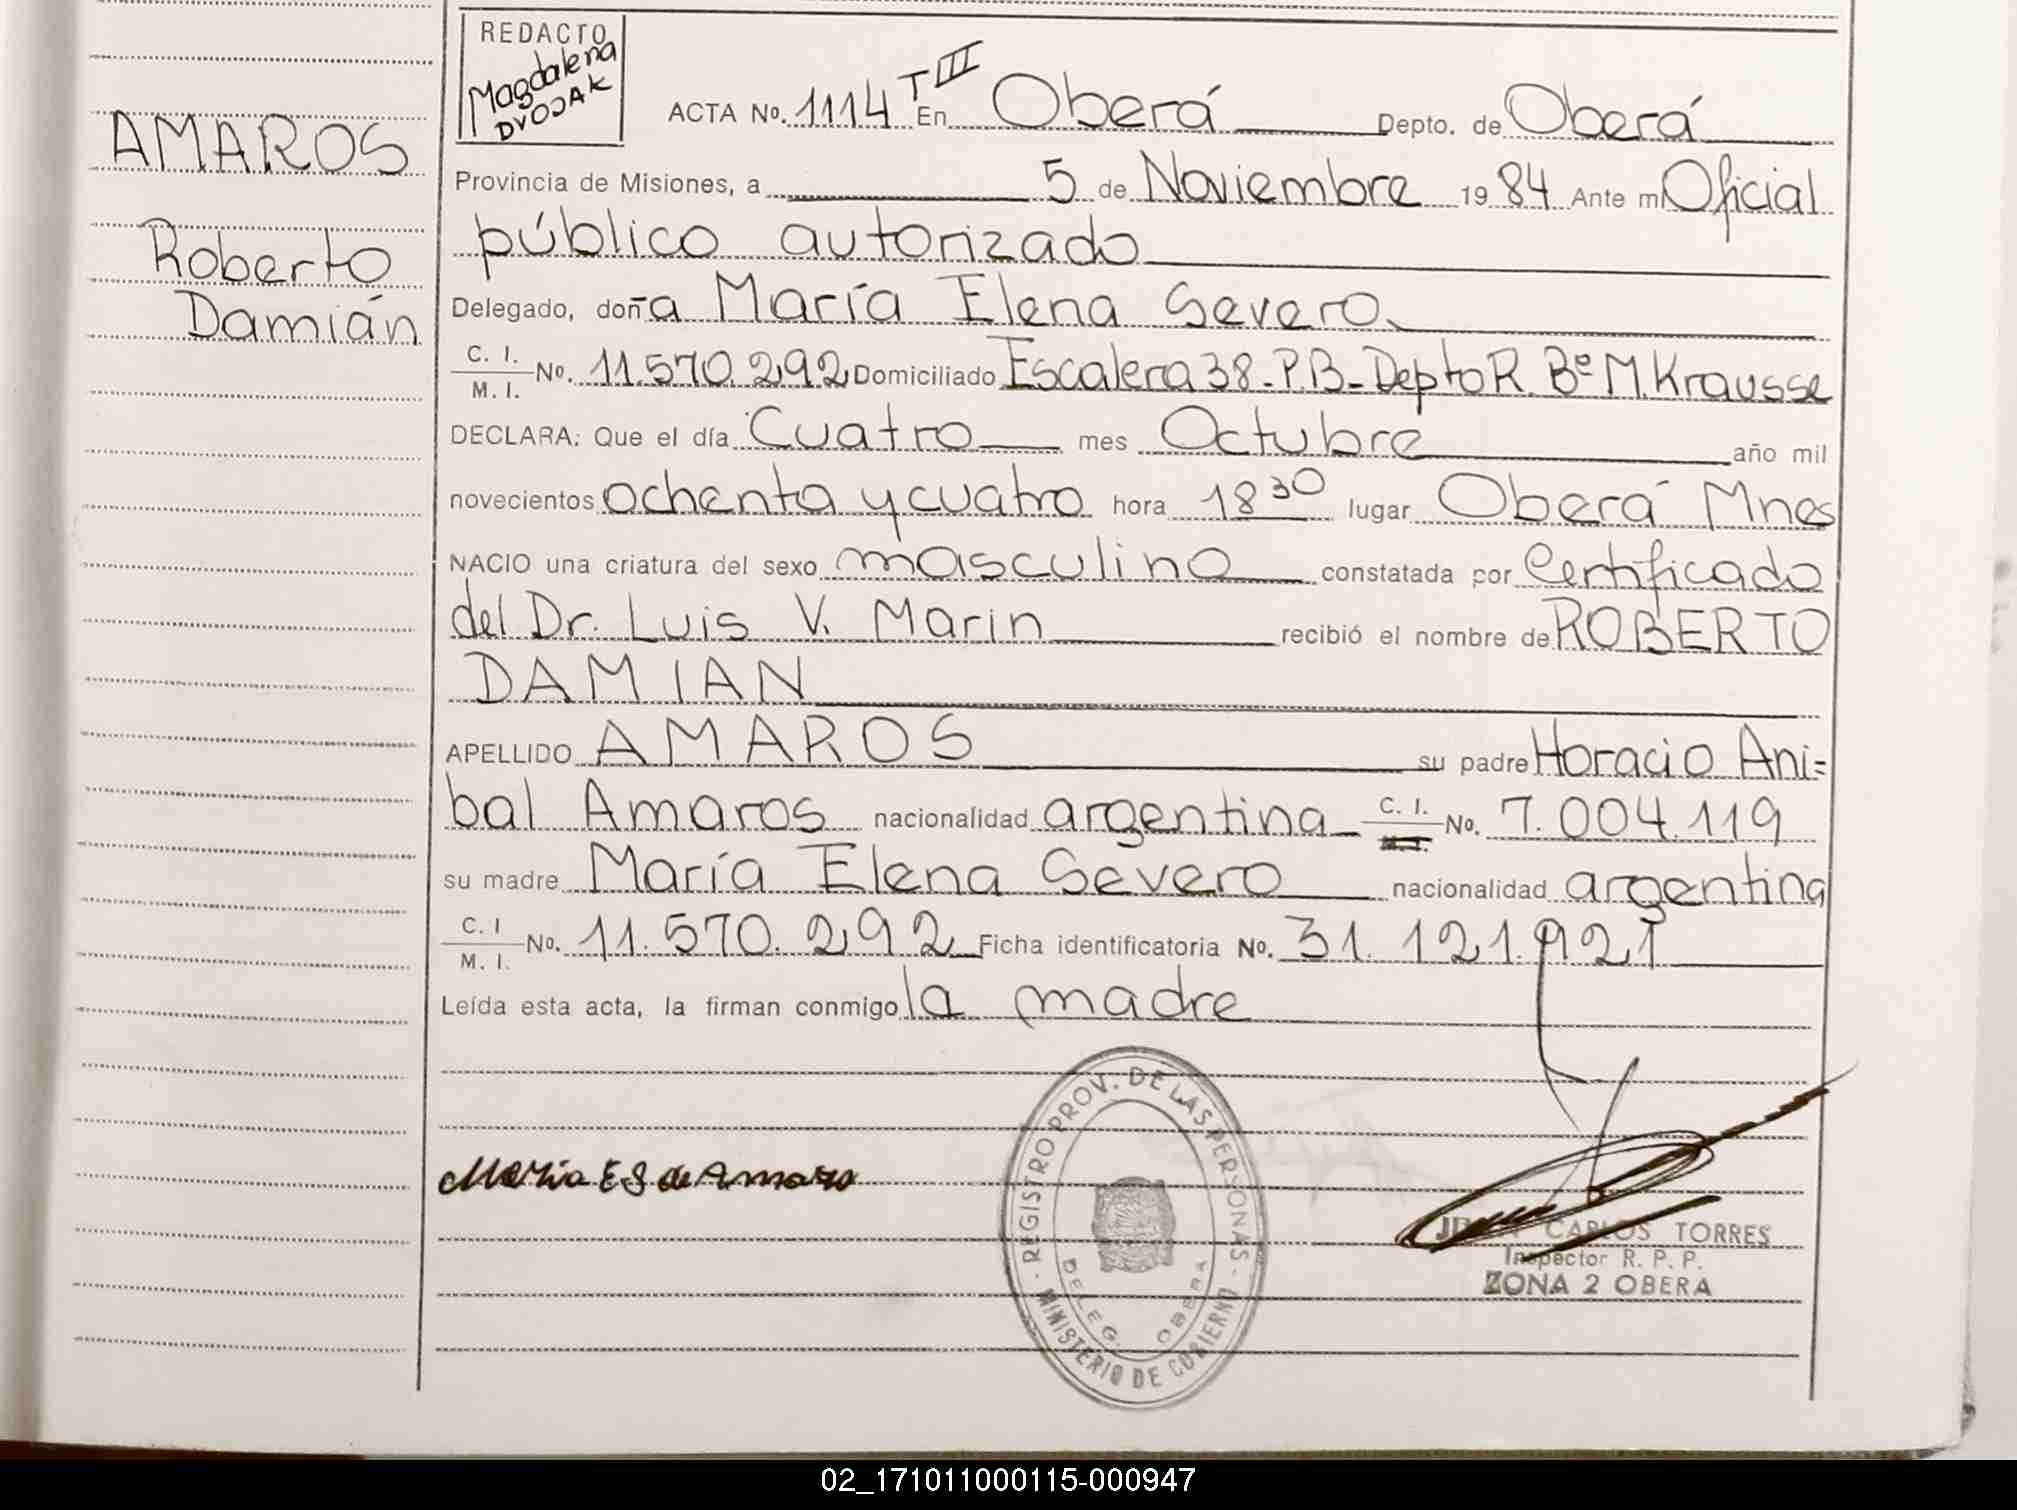 REDACTO
Magdalena
DVOJAK
AMAROS
Roberto
Damián
ACTA No. 1114 T III En Oberá Depto. de Oberá
Provincia de Misiones, a 5 de Noviembre 1984 Ante mi Oficial
público autorizado
Delegado, doña María Elena Severo
C. I. / M. I. No. 11.570.292 Domiciliado Escalera 38-P.B-Depto R. Bº M. Krausse
DECLARA: Que el día Cuatro mes Octubre año mil
novecientos ochenta y cuatro hora 18 30 lugar Oberá Mnes
NACIO una criatura del sexo masculino constatada por Certificado
del Dr. Luis V. Marin recibió el nombre de ROBERTO
DAMIAN
APELLIDO AMAROS su padre Horacio Ani=
bal Amaros nacionalidad argentina C. I. / M. I. No. 7.004.119
su madre María Elena Severo nacionalidad argentina
C. I / M. I. No. 11.570.292 Ficha identificatoria No. 31.121.921
Leída esta acta, la firman conmigo la madre
María E S de Amaro
REGISTRO PROV. DE LAS PERSONAS - MINISTERIO DE GOBIERNO -
DELEG. OBERA
CARLOS TORRES
Inspector R. P. P.
ZONA 2 OBERA
02_171011000115-000947